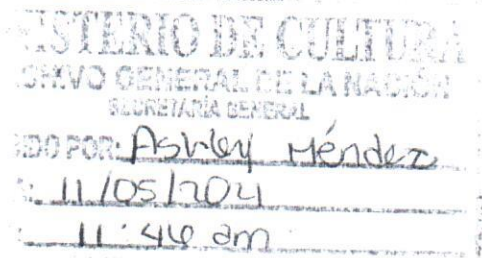 ISTERIO DE CULTURA
CHIVO GENERAL DE LA NACIÓN
SECRETARÍA GENERAL
IDO POR: Ashley Méndez
: 11/05/2021
11:46 am